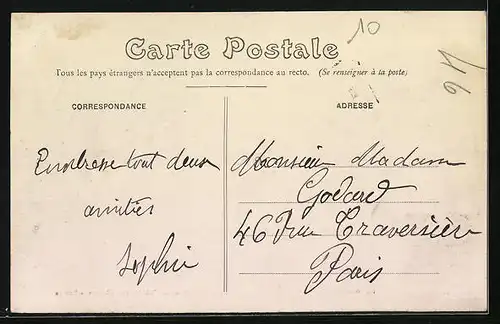 10
46
Carte Postale
Tous les pays étrangers n'acceptent pas la correspondance au recto. (Se renseigner à la poste)
CORRESPONDANCE
ADRESSE
Embrasse tout deux
amitiés
Sophie
Monsieur Madame
Godard
46 Rue Traversière
Paris